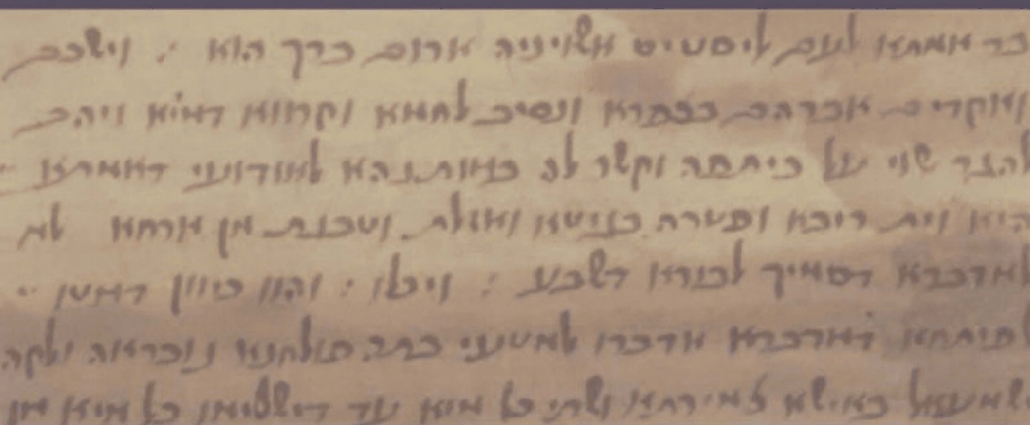 בר אמתא לעם ליסטיס אשויניה ארום ברך הוא : וישכם
ואקדים אברהם בצפרא ונסיב לחמא וקרווא דמיא ויהב
להגר שוי על כיתפה וקשר לה במותנהא לאודועי דאמתא
היא וית ריבא ופטרה בגיטא ואזלת וטענת מן ארחא למ
למדברא דסמיך לבירא דשבע : ויכלו : והוו כיוון דמטון
לפיתחא דמדברא אדכרו למטעי בתר פולחנא נוכראה ולקה
ישמעאל באישא צמירתא ושתי כל מיא עד דישלימו כל מיא מן